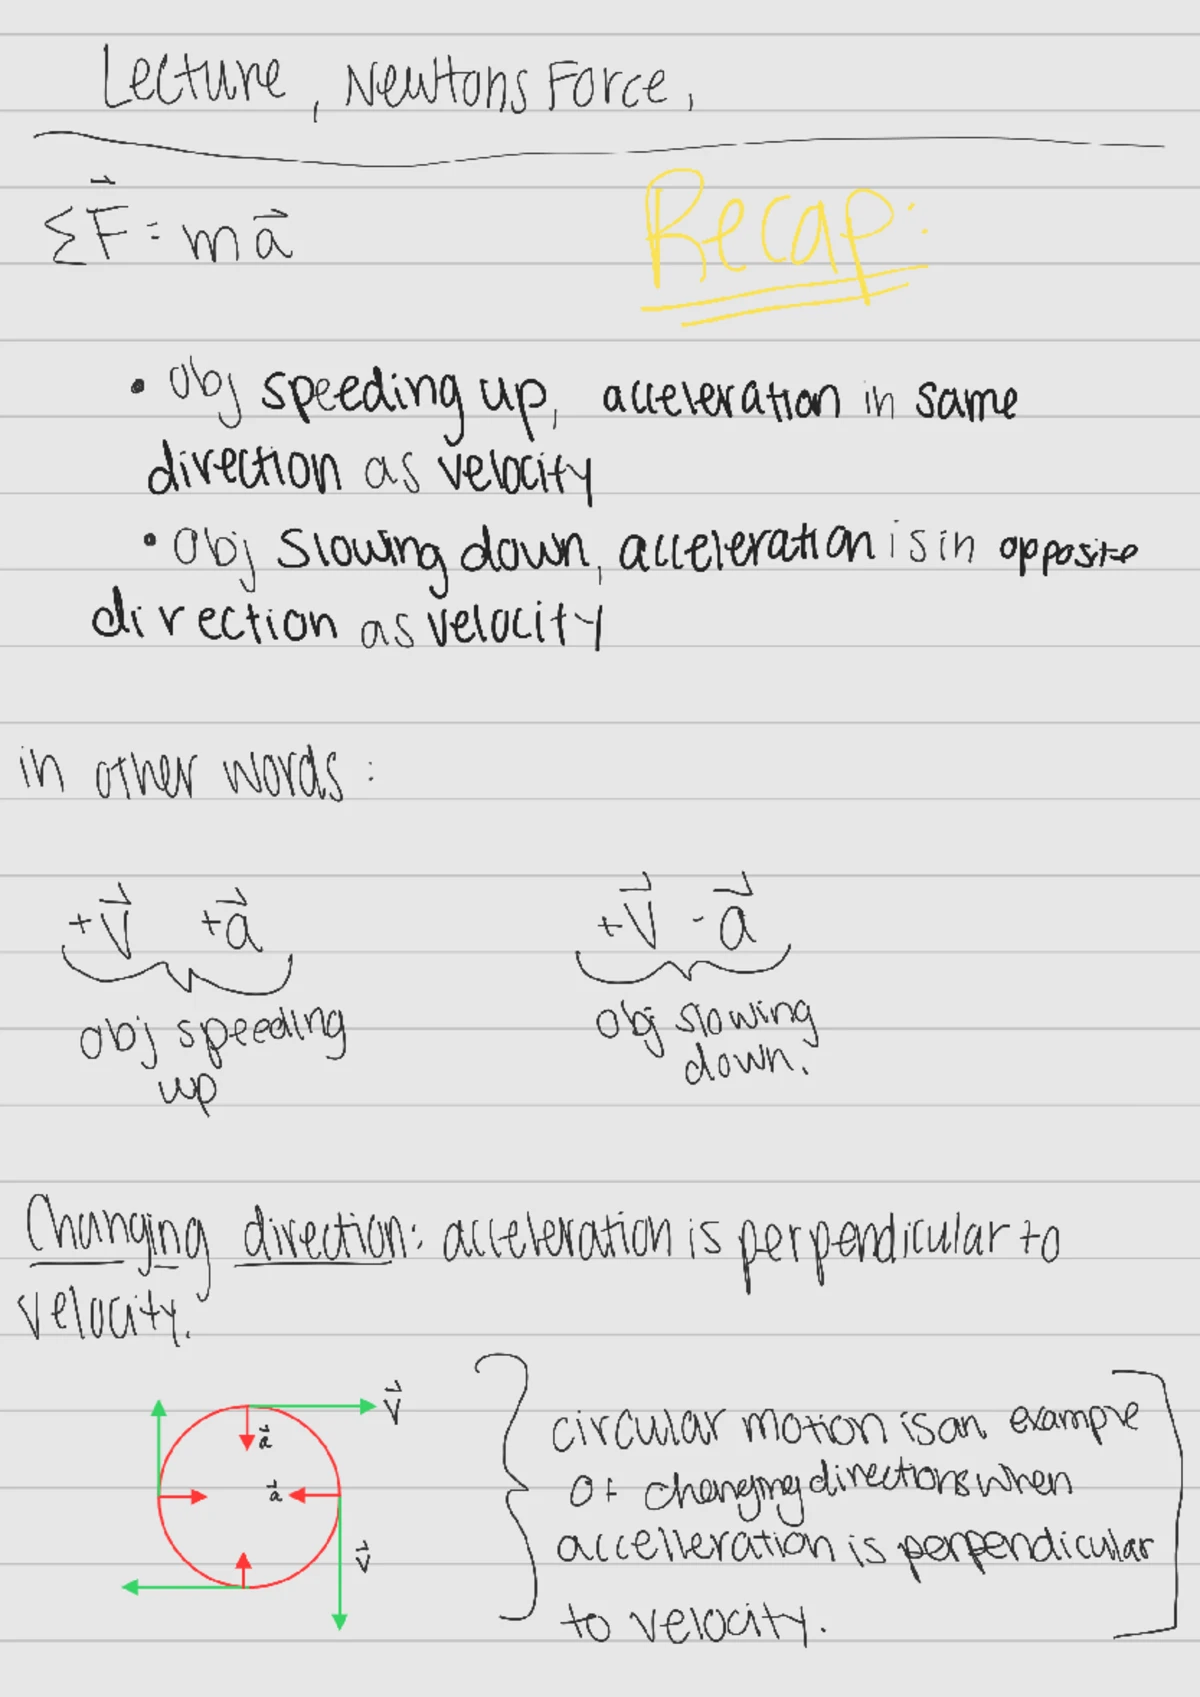 Lecture, Newtons Force,
ΣF⃗ = ma⃗
Recap:
• Obj speeding up, acceleration in same
direction as velocity
• Obj slowing down, acceleration is in opposite
direction as velocity
in other words:
+V⃗ +a⃗
+V⃗ -a⃗
obj speeding
up
obj slowing
down.
Changing direction: acceleration is perpendicular to
velocity.
V⃗
a⃗
a⃗
V⃗
circular motion is an example
of changing directions when
accelleration is perpendicular
to velocity.